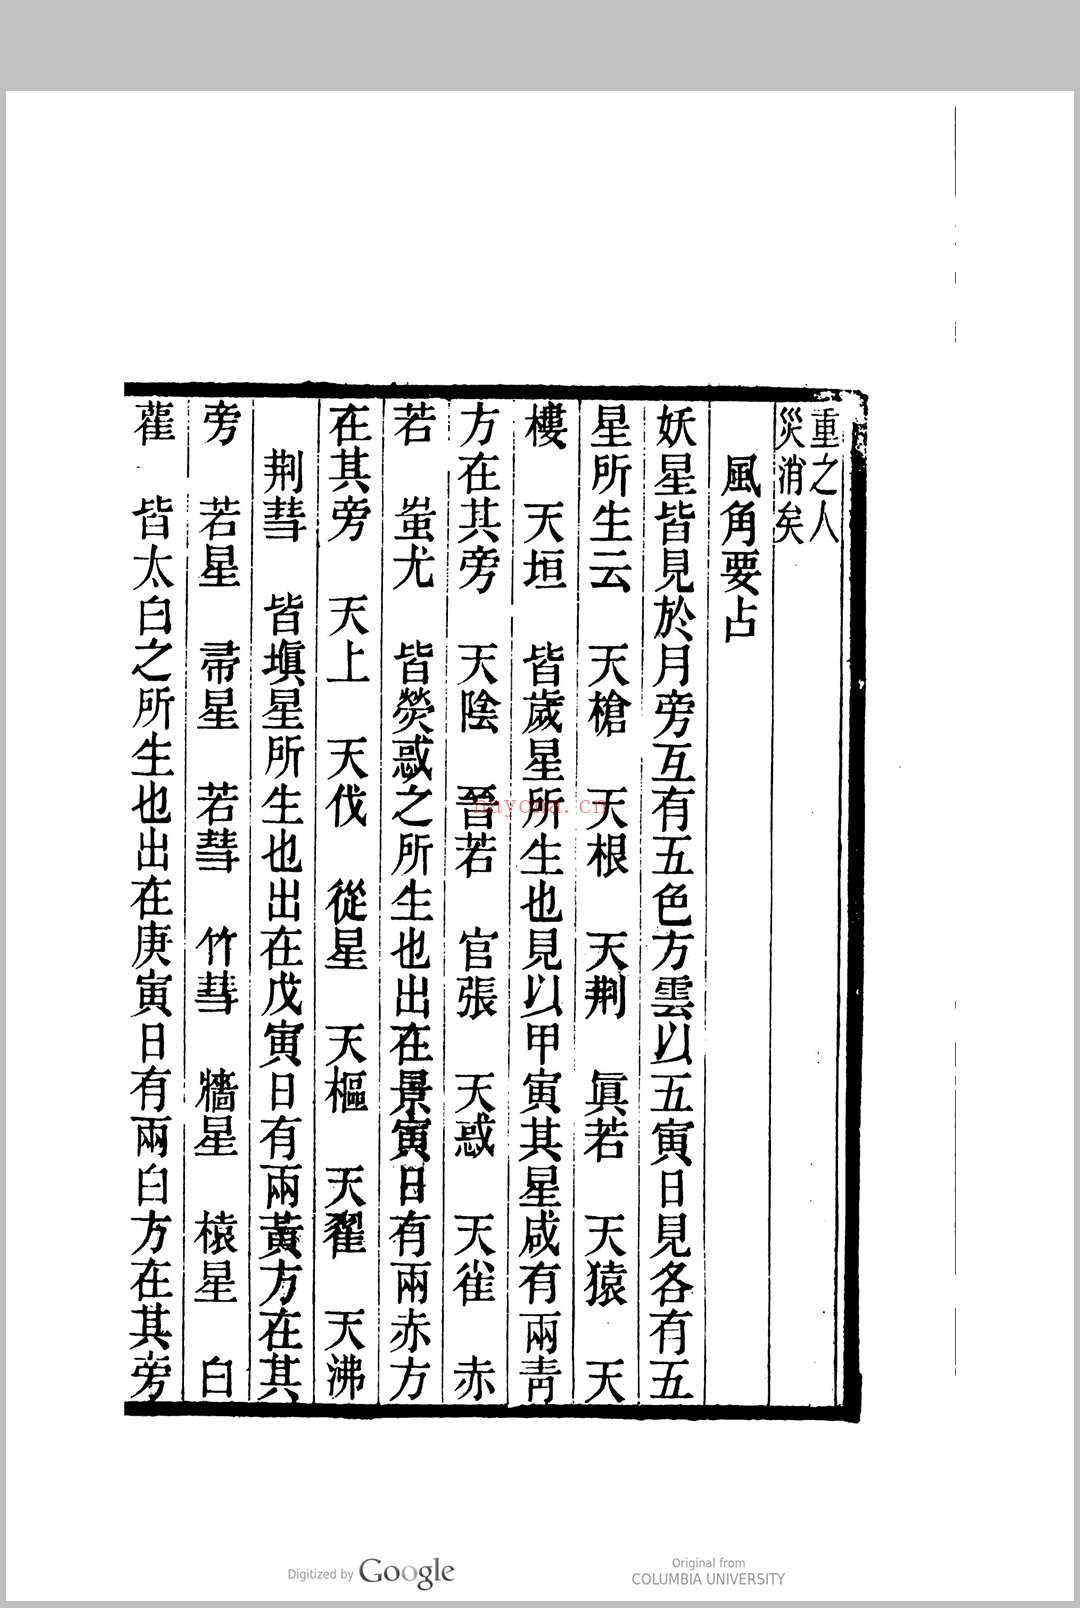 重之人
災消矣
風角要占
妖星皆見於月旁互有五色方雲以五寅日見各有五
星所生云　天槍　天根　天荆　眞若　天猿　天
樓　天垣　皆歲星所生也見以甲寅其星咸有兩靑
方在其旁　天陰　晉若　官張　天惑　天雀　赤
若　蚩尤　皆熒惑之所生也出在景寅日有兩赤方
在其旁　天上　天伐　從星　天樞　天翟　天沸
荆彗　皆塡星所生也出在戊寅日有兩黃方在其
旁　若星　帚星　若彗　竹彗　牆星　榬星　白
雚　皆太白之所生也出在庚寅日有兩白方在其旁
nayona.cn
Digitized by Google
Original from
COLUMBIA UNIVERSITY